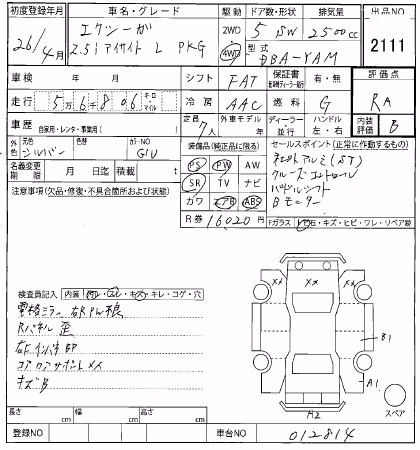 初度登録年月 車名・グレード 駆動 ドア数・形状 排気量 出品NO
26/4月 エクシーガ 2WD 5 SW 2500cc
2.5i アイサイト L PKG 4WD 型式 DBA-YAM 2111
車検 年 月 シフト FAT 保証書 有・無 評価点
走行 5万6千806 キロ・マイル 冷房 AAC 燃料 G RA
車歴 自家用・レンタ・事業用( ) 定員 7人 外車モデル 年 ディーラー・並行 ハンドル 左・右 内装評価 B
外色 元色 シルバー 色替 カラーNO G1U 装備品(純正品に限る) セールスポイント(正常に作動するもの)
名義変更期限 月 日迄 積載 t PS PW AW 純正アルミ(ST)
注意事項(欠品・修復・不具合箇所および状態) SR TV ナビ クルーズコントロール
カワ エアB ABS パドルシフト
R券 16020円 Bモニター
Fガラス 飛石・キズ・ヒビ・ワレ・リペア跡
検査員記入 内装
キレ・コゲ・穴
電格ミラー
Rパネル 歪
コアサポートメメ
キズB
メメ メメ
B1
A1
A2
スペア
長さ cm 幅 cm 高さ cm
登録NO 車台NO 012814